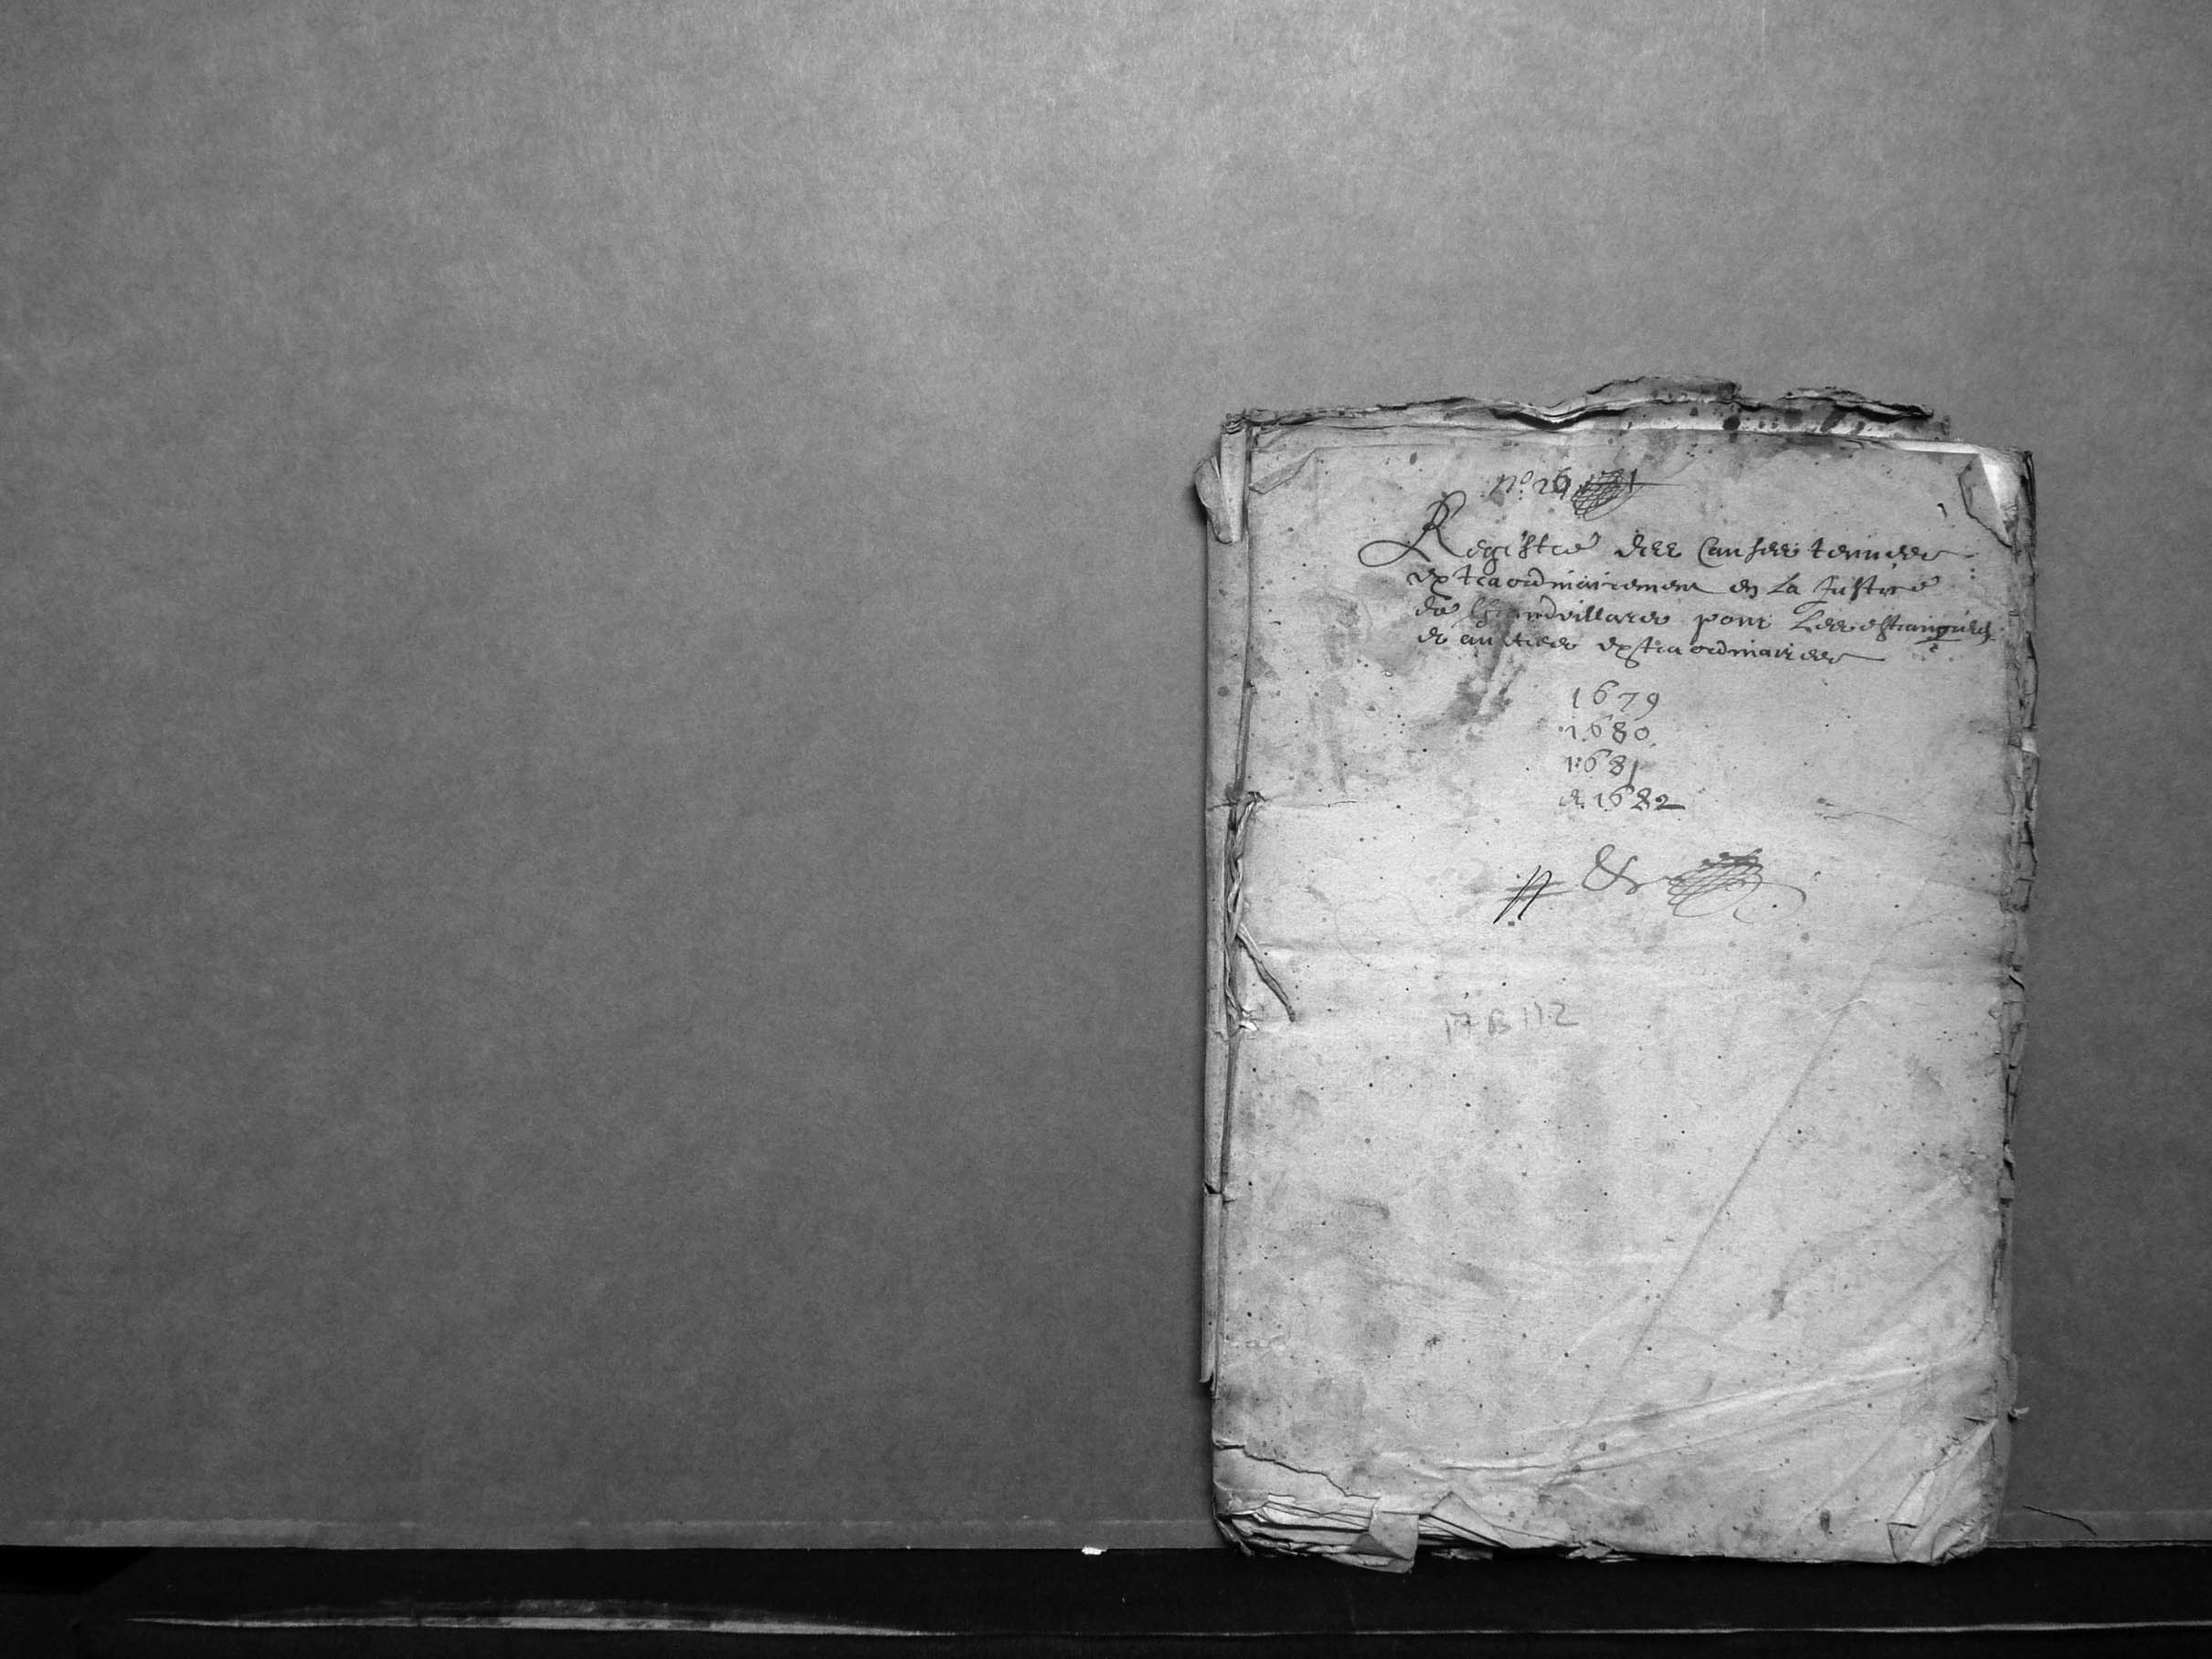 n.º 29
Registre des Causes tenues
extraordinairement en La Justice
de Grandvillars pour Les estrangers
et autres extraordinaires
1679
1680
1681
et 1682
17 B 112